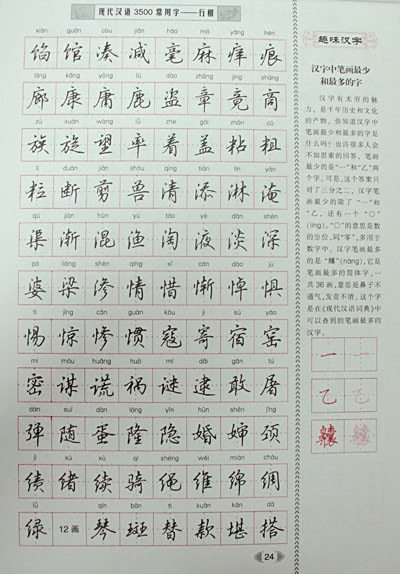 现代汉语3500常用字——行楷
xiàn guǎn còu jiǎn háo má yǎng hén
馅 馆 凑 减 毫 麻 痒 痕
láng kāng yōng lù dào zhāng jìng shāng
廊 康 庸 鹿 盗 章 竟 商
zú xuán wàng lǜ zhe gài zhān cū
族 旋 望 率 着 盖 粘 粗
lì duàn jiǎn shòu qīng tiān lín yān
粒 断 剪 兽 清 添 淋 淹
qú jiàn hùn yú táo yè dàn shēn
渠 渐 混 渔 淘 液 淡 深
pó liáng shèn qíng xī cán dào jù
婆 梁 渗 情 惜 惭 悼 惧
tì jīng cǎn guàn kòu jì sù yáo
惕 惊 惨 惯 寇 寄 宿 窑
mì móu huǎng huò mí dǎi gǎn tú
密 谋 谎 祸 谜 逮 敢 屠
dàn suí dàn lóng yǐn hūn shěn jǐng
弹 随 蛋 隆 隐 婚 婶 颈
jì xù xù qí shéng wéi mián chóu
绩 绪 续 骑 绳 维 绵 绸
lǜ qín bān tì kuǎn kān dā
绿 12画 琴 斑 替 款 堪 搭
24
趣味汉字
汉字中笔画最少
和最多的字
汉字有无穷的魅
力，是千年历史和文化
的产物。你知道汉字中
笔画最少和最多的字是
什么吗？也许很多人会
不加思索的回答，笔画
最少的是“一”和“乙”两
个字。可是，这个答案只
对了三分之二，汉字笔
画最少的除了“一”和
“乙，还有一个“〇”
(líng)。“〇”的意思是数
的空位，同“零”，多用于
数字中。汉字笔画最多
的是“齉”(nàng)，它是
笔画最多的简体字，一
共36画，意思是鼻子不
通气，发音不清。这个字
是在《现代汉语词典》中
可以查到的笔画最多的
汉字。
一 一
乙 乙
齉 齉